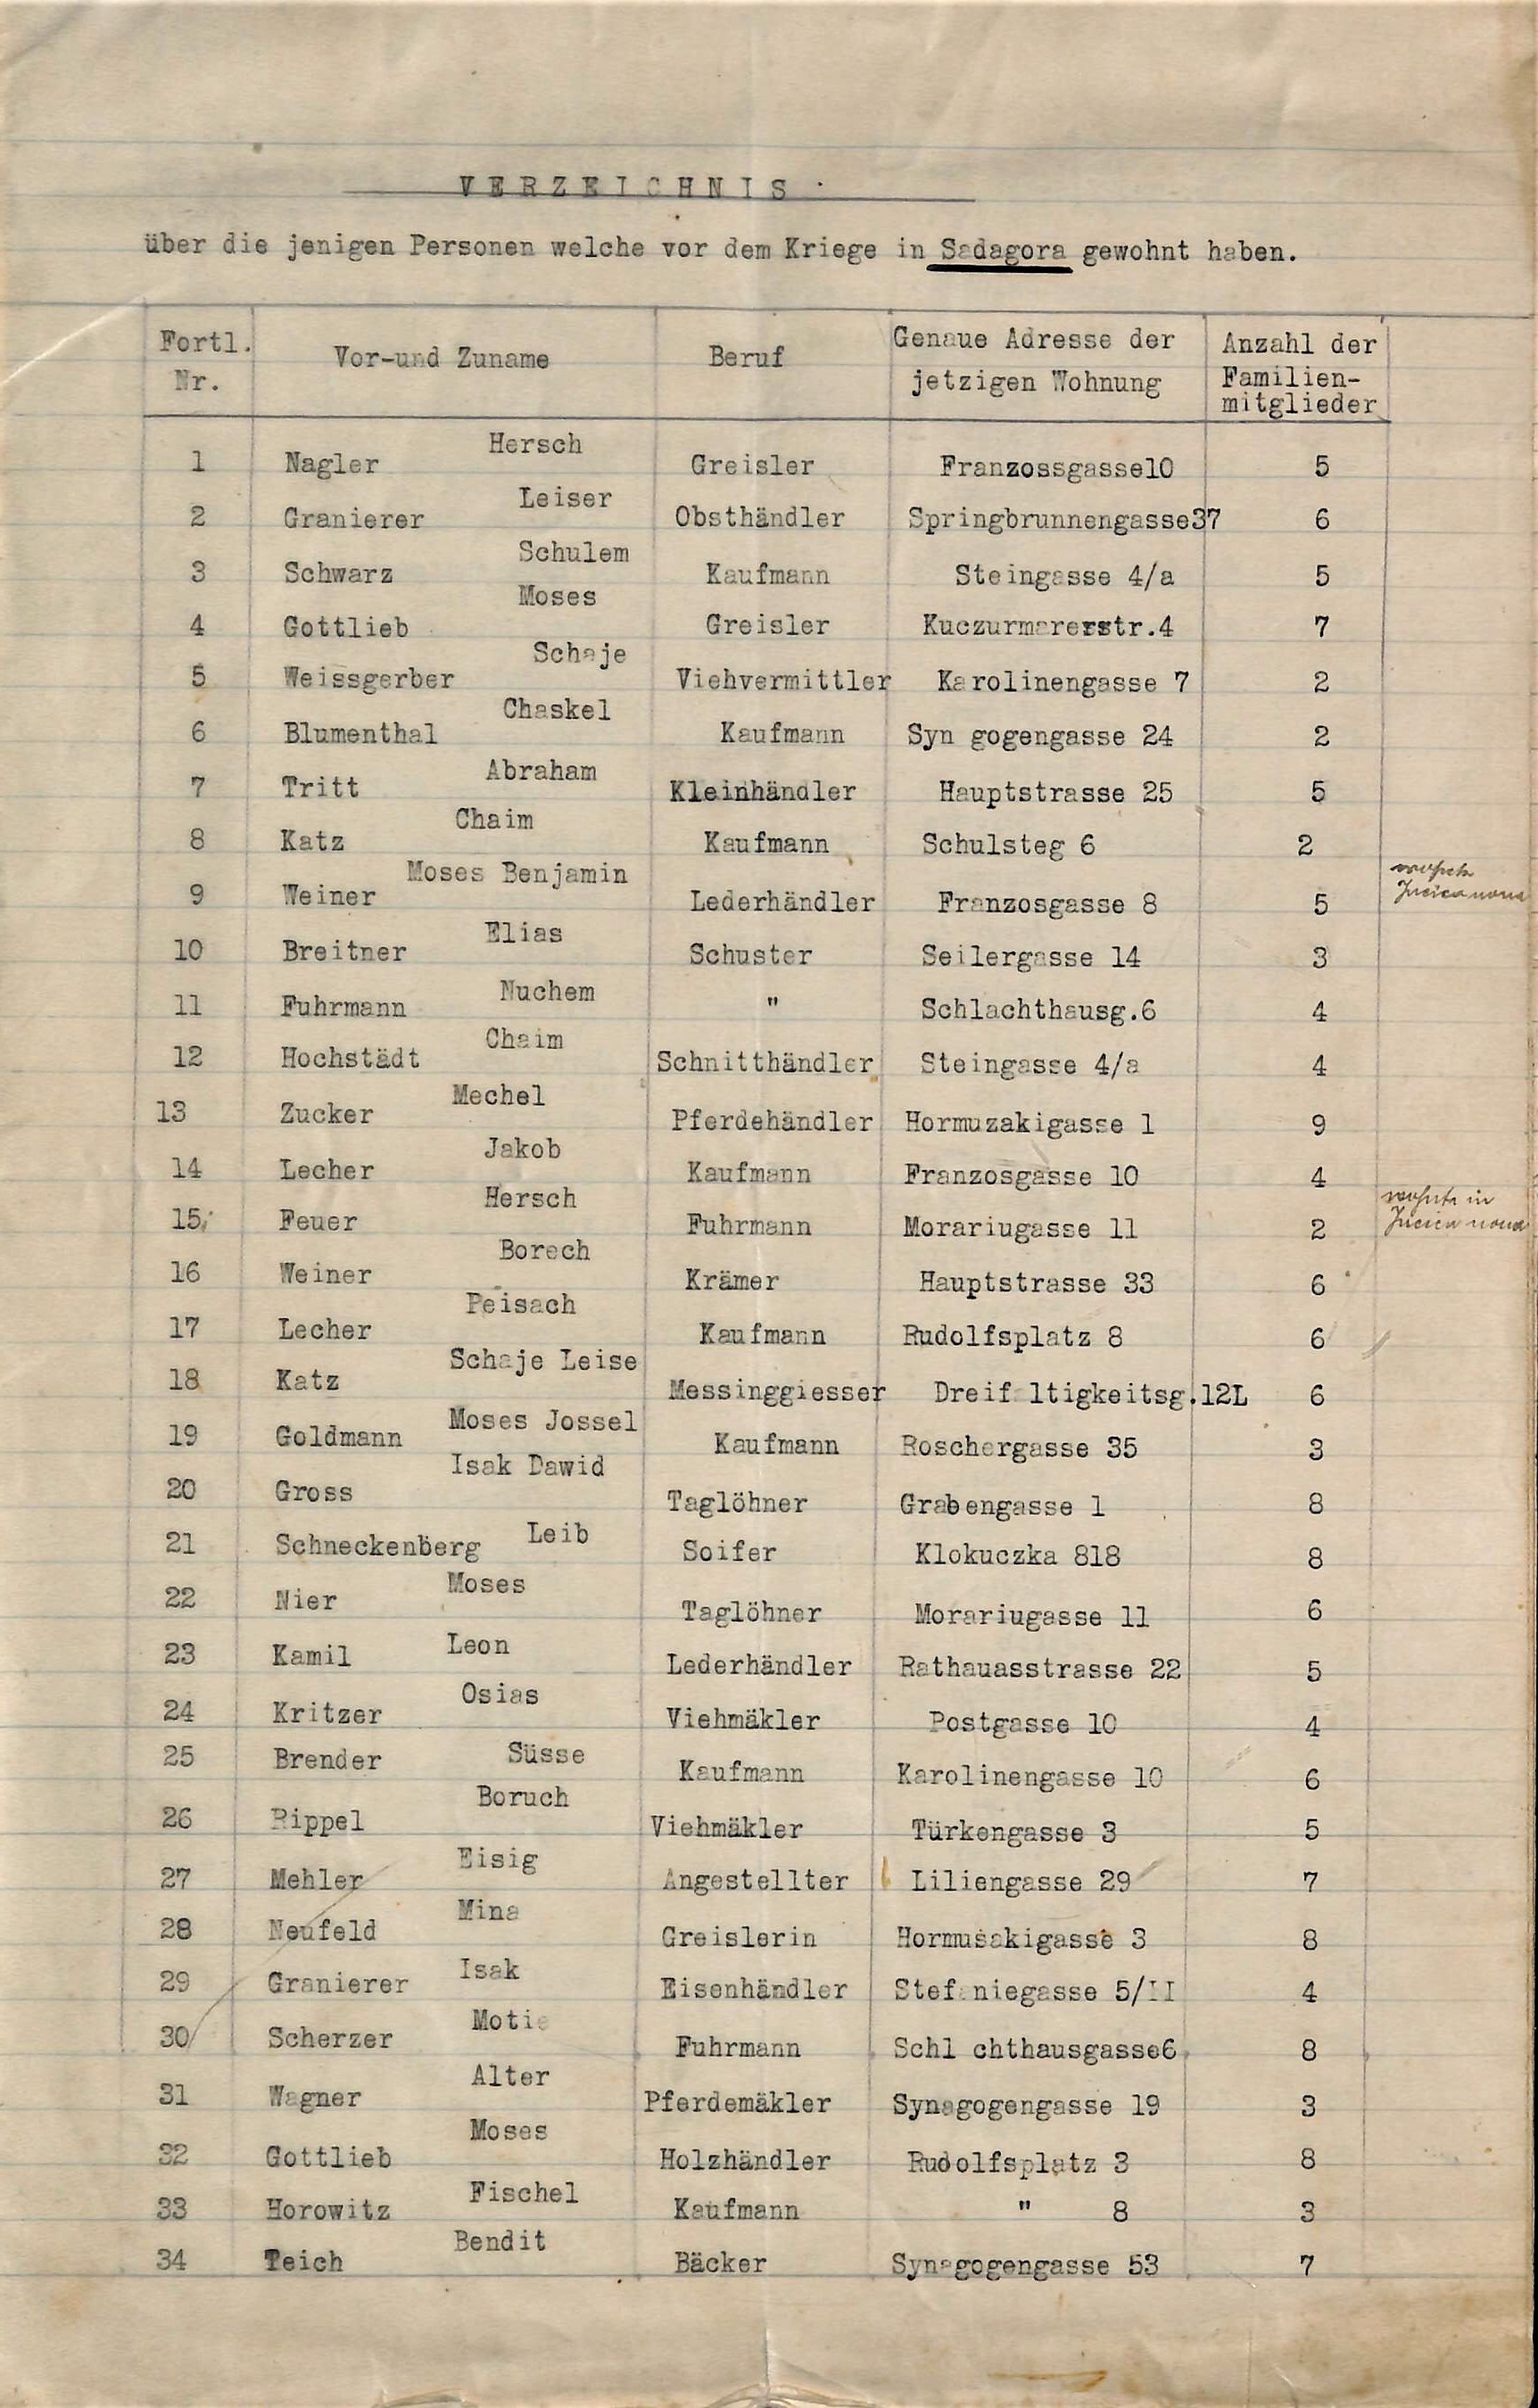 VERZEICHNIS
über die jenigen Personen welche vor dem Kriege in Sadagora gewohnt haben.
Fortl. Nr. Vor-und Zuname Beruf Genaue Adresse der jetzigen Wohnung Anzahl der Familien-mitglieder
1 Nagler Hersch Greisler Franzossgasse10 5
2 Granierer Leiser Obsthändler Springbrunnengasse37 6
3 Schwarz Schulem Kaufmann Steingasse 4/a 5
4 Gottlieb Moses Greisler Kuczurmarerstr.4 7
5 Weissgerber Schaje Viehvermittler Karolinengasse 7 2
6 Blumenthal Chaskel Kaufmann Syn gogengasse 24 2
7 Tritt Abraham Kleinhändler Hauptstrasse 25 5
8 Katz Chaim Kaufmann Schulsteg 6 2
9 Weiner Moses Benjamin Lederhändler Franzosgasse 8 5
10 Breitner Elias Schuster Seilergasse 14 3
11 Fuhrmann Nuchem " Schlachthausg.6 4
12 Hochstädt Chaim Schnitthändler Steingasse 4/a 4
13 Zucker Mechel Pferdehändler Hormuzakigasse 1 9
14 Lecher Jakob Kaufmann Franzosgasse 10 4
15 Feuer Hersch Fuhrmann Morariugasse 11 2 wohnte in Jucica noua
16 Weiner Borech Krämer Hauptstrasse 33 6
17 Lecher Peisach Kaufmann Rudolfsplatz 8 6
18 Katz Schaje Leise Messinggiesser Dreif ltigkeitsg.12L 6
19 Goldmann Moses Jossel Kaufmann Roschergasse 35 3
20 Gross Isak Dawid Taglöhner Grabengasse 1 8
21 Schneckenberg Leib Soifer Klokuczka 818 8
22 Nier Moses Taglöhner Morariugasse 11 6
23 Kamil Leon Lederhändler Rathauasstrasse 22 5
24 Kritzer Osias Viehmäkler Postgasse 10 4
25 Brender Süsse Kaufmann Karolinengasse 10 6
26 Rippel Boruch Viehmäkler Türkengasse 3 5
27 Mehler Eisig Angestellter Liliengasse 29 7
28 Neufeld Mina Greislerin Hormusakigasse 3 8
29 Granierer Isak Eisenhändler Stefaniegasse 5/II 4
30 Scherzer Motie Fuhrmann Schl chthausgasse6 8
31 Wagner Alter Pferdemäkler Synagogengasse 19 3
32 Gottlieb Moses Holzhändler Rudolfsplatz 3 8
33 Horowitz Fischel Kaufmann " 8 3
34 Teich Bendit Bäcker Synagogengasse 53 7